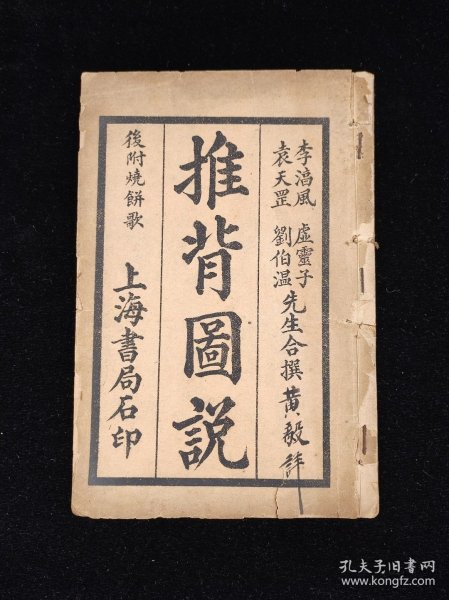 李湻風 虛靈子
袁天罡 劉伯溫 先生合撰 黃毅詳
推背圖說
後附燒餅歌
上海書局石印
孔夫子旧书网
www.kongfz.com